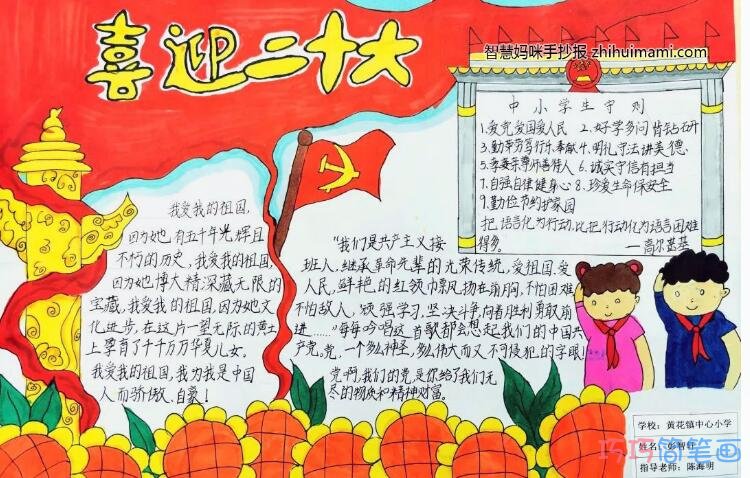 喜迎二十大
智慧妈咪手抄报 zhihuimami.com
中小学生守则
1.爱党爱国爱人民 2.好学多问肯钻研
3.勤劳笃行乐奉献 4.明礼守法讲美德
5.孝亲尊师善待人 6.诚实守信有担当
7.自强自律健身心 8.珍爱生命保安全
9.勤俭节约护家园
把语言化为行动,比把行动化为语言困难
得多。
——高尔基
我爱我的祖国,
因为她有五千年光辉且
不朽的历史,我爱我的祖国,
因为她博大精深藏无限的
宝藏,我爱我的祖国,因为她文
化进步,在这片一望无际的黄土
上享有了千千万万华夏儿女。
我爱我的祖国,我为我是中国
人而骄傲、自豪!
"我们是共产主义接
班人,继承革命先辈的光荣传统,爱祖国、爱
人民,鲜艳的红领巾飘扬在前胸,不怕困难
不怕敌人,顽强学习,坚决斗争,向着胜利勇敢前
进……"每每吟唱这首歌都会想起我们的中国共
产党,党,一个多么神圣,多么伟大而又不可侵犯的字眼!
党啊,我们的党是你给了我们无
尽的物质和精神财富。
学校:黄花镇中心小学
姓名:彭智轩
指导老师:陈海明
巧巧简笔画